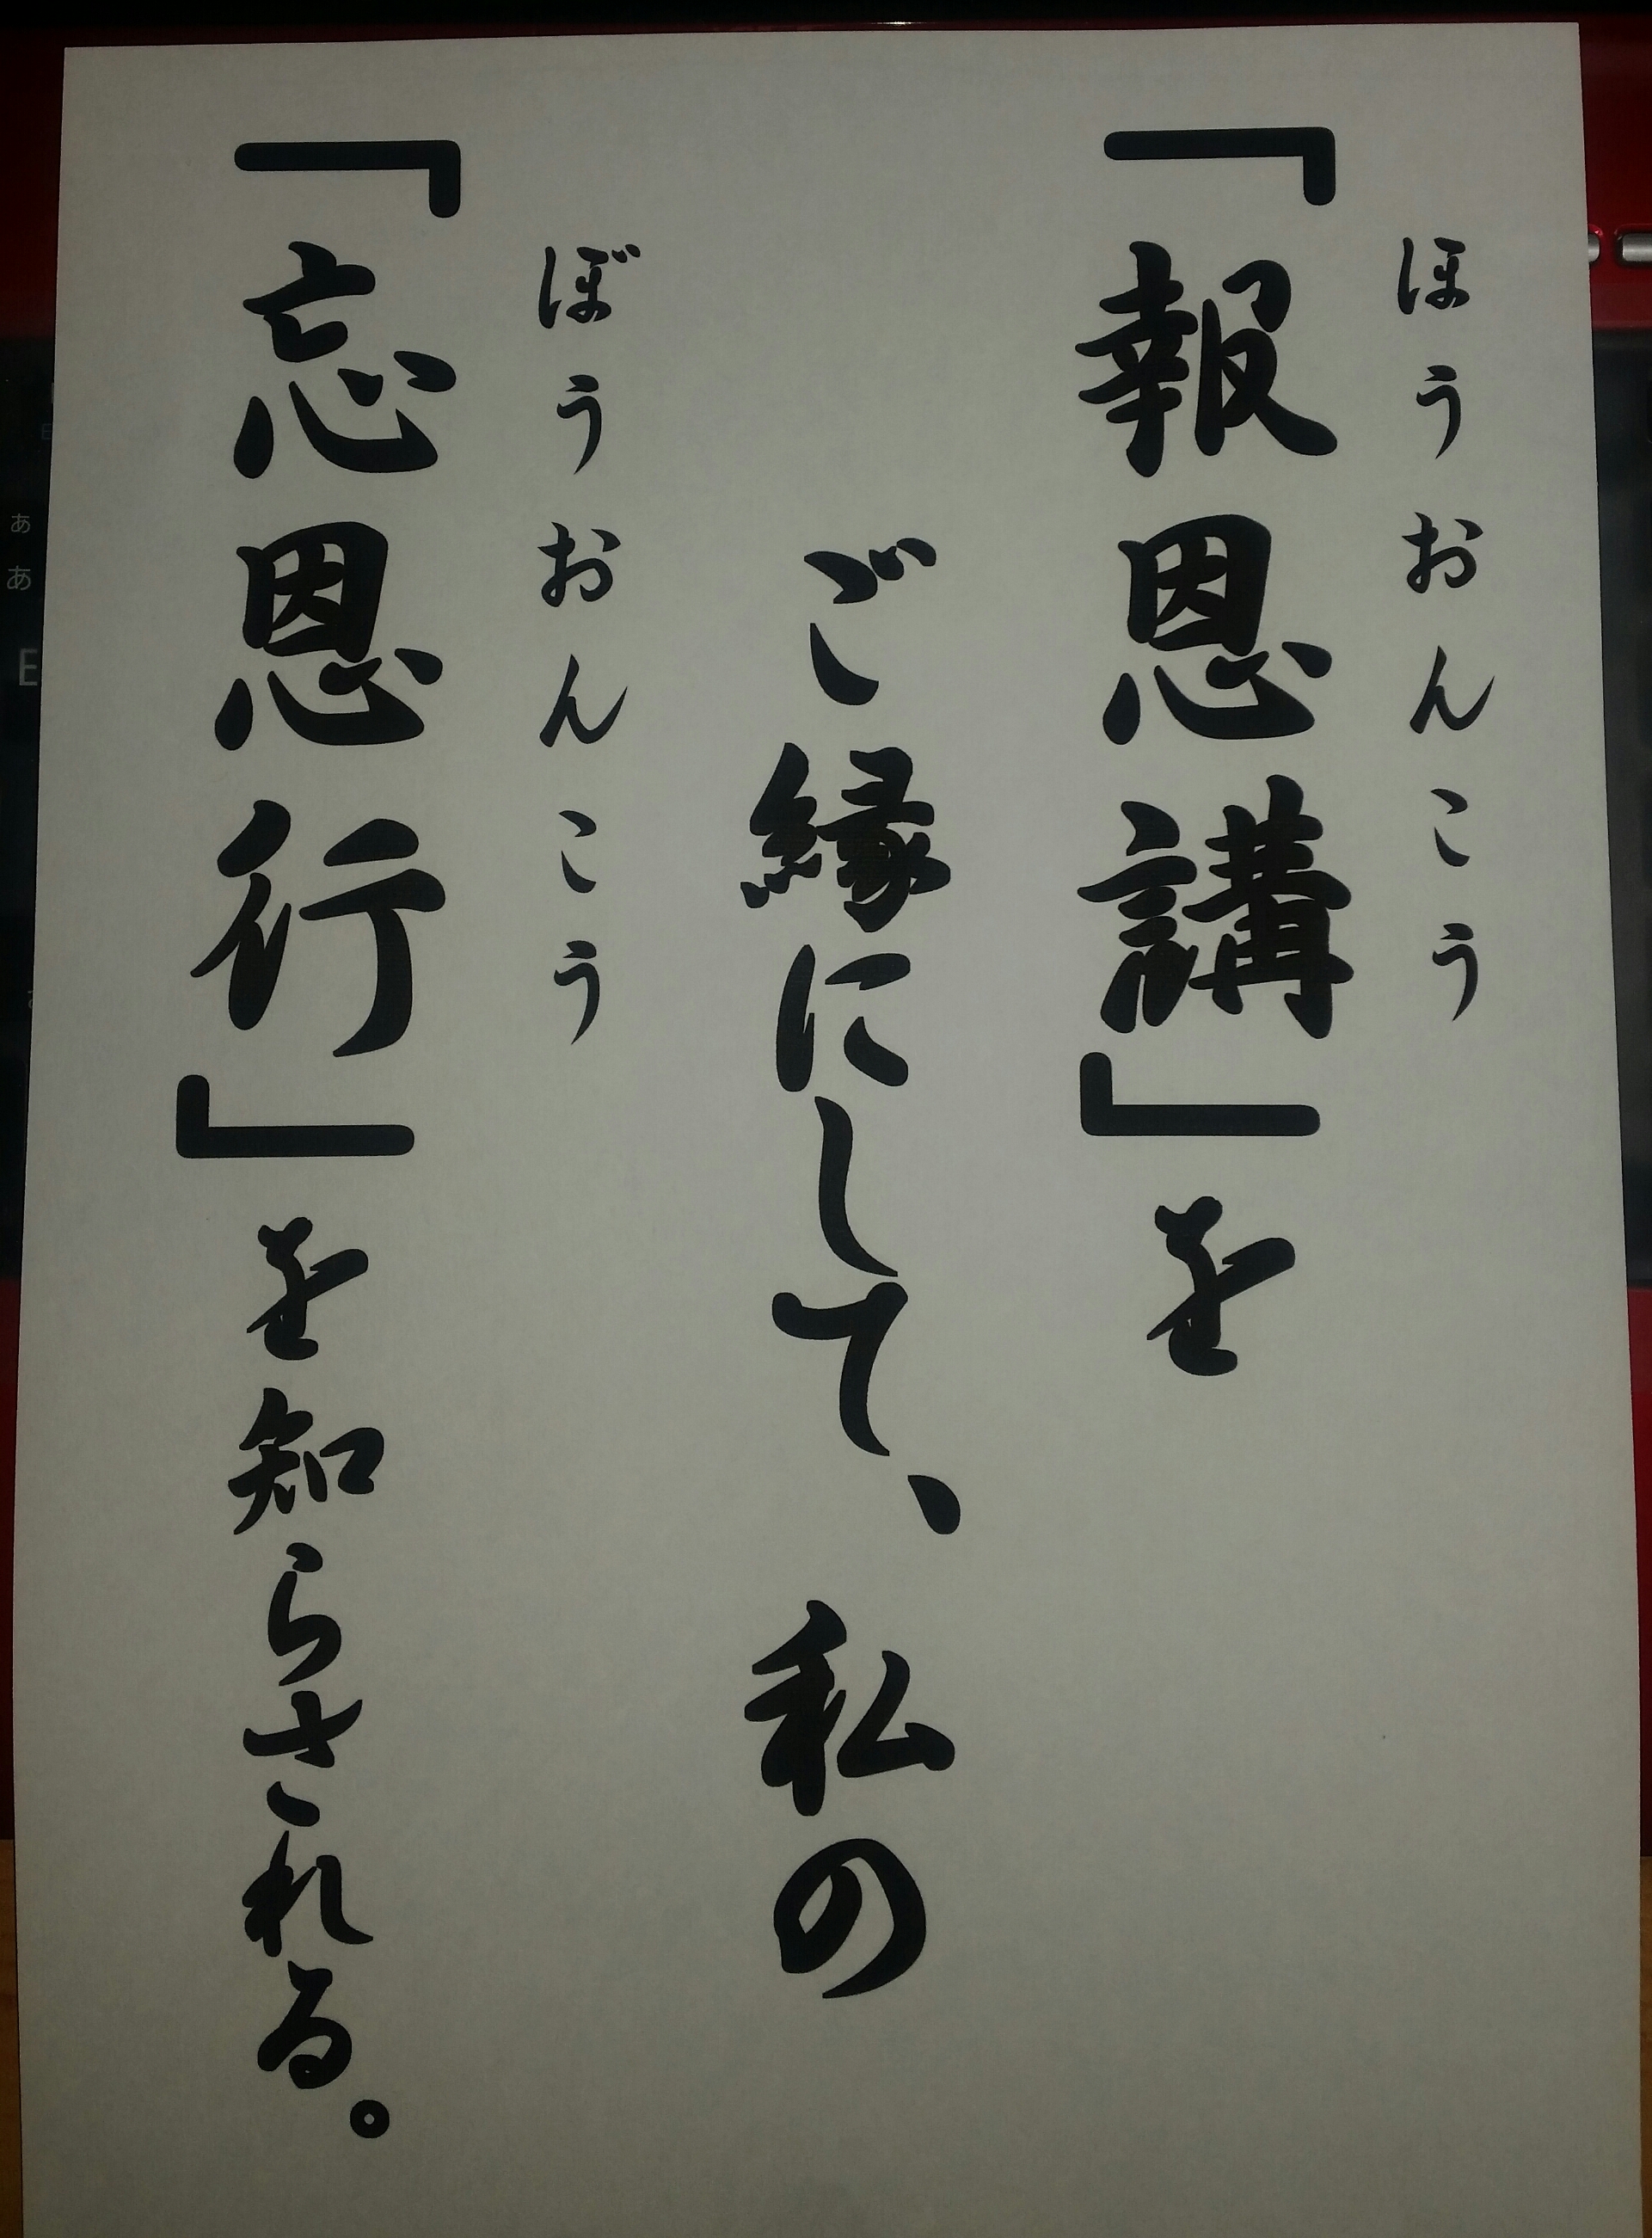 ほうおんこう
「報恩講」を
ご縁にして、私の
ぼうおんこう
「忘恩行」を知らされる。
あ
あ
E